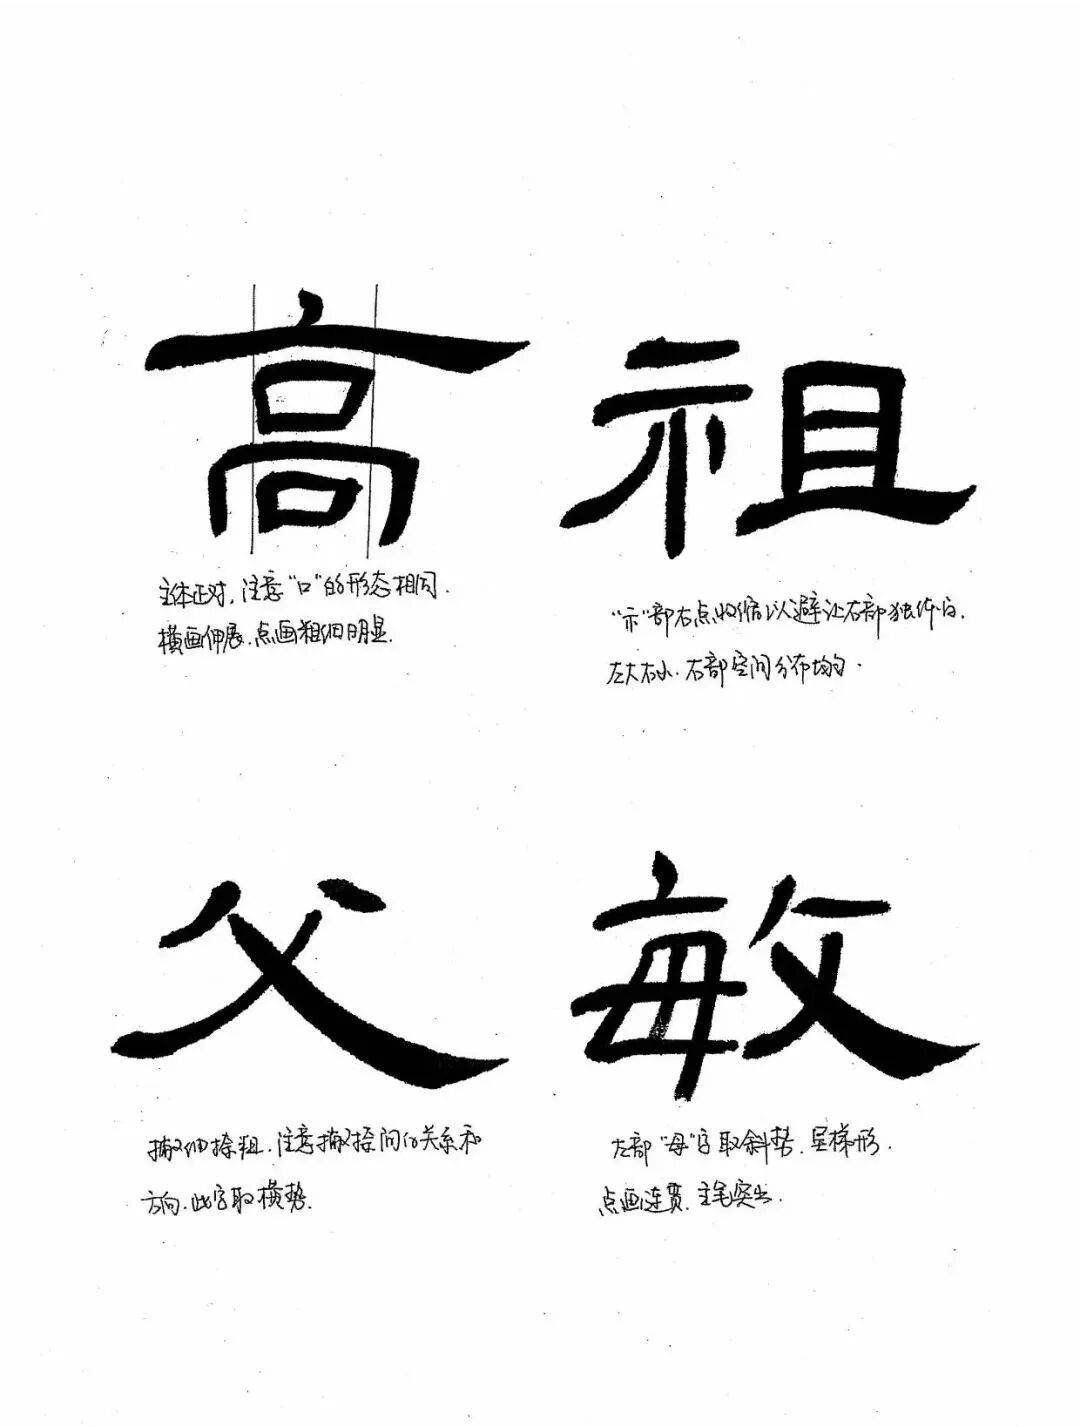 高 祖
主体正对，注意“口”的形态相同．
横画伸展、点画粗细明显．
“示”部右点收缩以避让右部独体字．
左大右小．右部空间分布均匀．
父 敏
撇细捺粗．注意撇捺间的关系和
方向．此字取横势．
左部“母”字取斜势．呈梯形．
点画连贯．主笔突出．